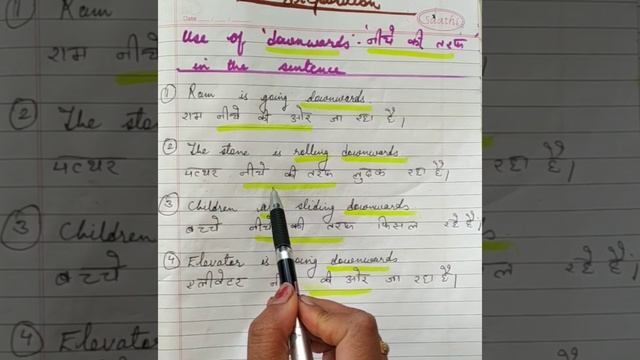 Saathi
Date
Use of 'downwards' - 'नीचे की तरफ'
in the sentence
① Ram is going downwards
राम नीचे की ओर जा रहा है।
② The stone is rolling downwards
पत्थर नीचे की तरफ लुढ़क रहा है।
③ Children are sliding downwards
बच्चे नीचे की तरफ फिसल रहे हैं।
④ Elevator is going downwards
एलीवेटर की ओर जा रहा है।